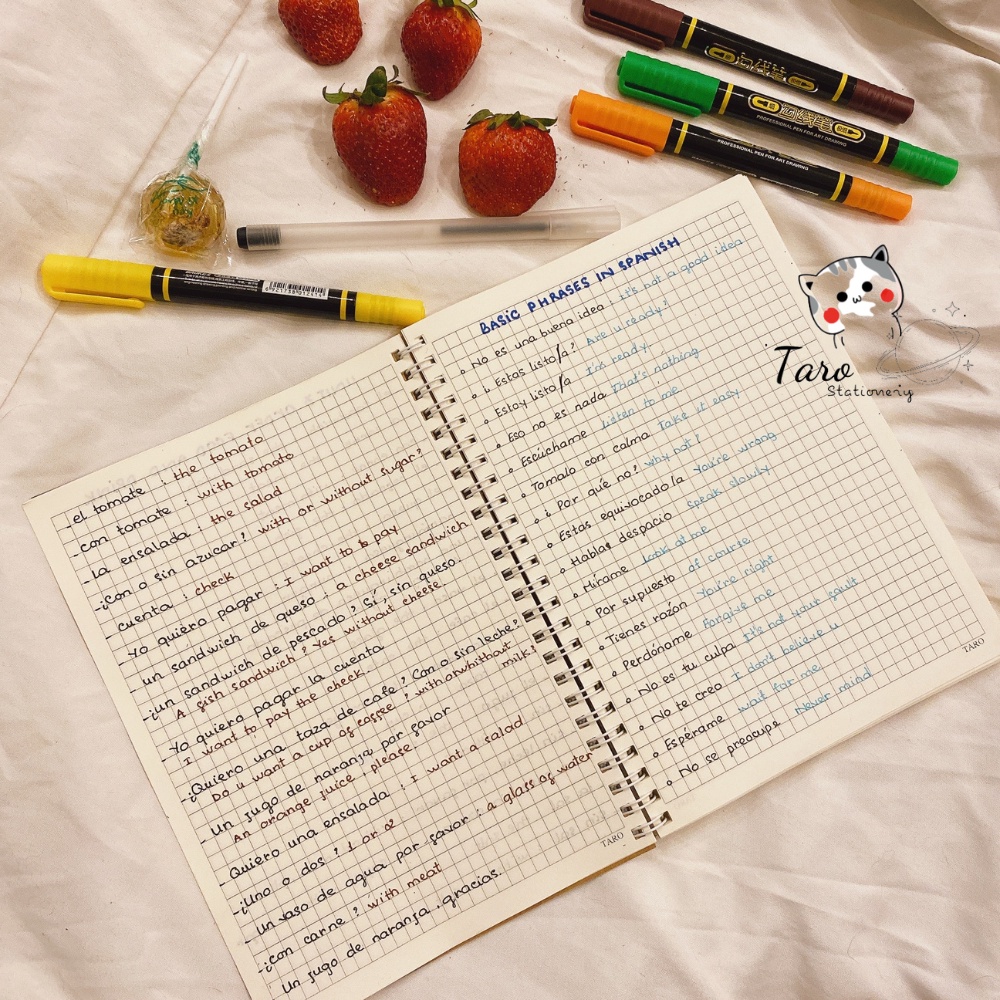 -el tomate : the tomato
-con tomate : with tomato
-la ensalada : the salad
-¿Con o sin azucar? with or without sugar?
cuenta : check
-Yo quiero pagar : I want to pay
-un sandwich de queso : a cheese sandwich
-¿un sandwich de pescado, Sí, sin queso.
A fish sandwich? Yes without cheese
Yo quiero pagar la cuenta
I want to pay the check
-¿Quiero una taza de cafe? Con o sin leche?
Do u want a cup of coffee? with or without milk?
-un jugo de naranja por favor
An orange juice, please
-Quiero una ensalada : I want a salad
-¿Uno o dos? 1 or 2
-un vaso de agua por favor : a glass of water
-¿con carne? with meat
Un jugo de naranja, gracias.
TARO
BASIC PHRASES IN SPANISH
No es una buena idea it's not a good idea
¿Estas listo/a? Are u ready?
Estoy listo/a I'm ready
Eso no es nada That's nothing
Escúchame listen to me
Tomalo con calma Take it easy
¿Por qué no? why not?
Estas equivocado/a You're wrong
Hablas despacio speak slowly
Mirame look at me
Por supuesto of course
Tienes razón You're right
Perdóname Forgive me
No es tu culpa It's not your fault
No te creo I don't believe u
Espérame wait for me
No se preocupe Never mind
TARO
PROFESSIONAL PEN FOR ART DRAWING
PROFESSIONAL PEN FOR ART DRAWING
Taro
Stationery